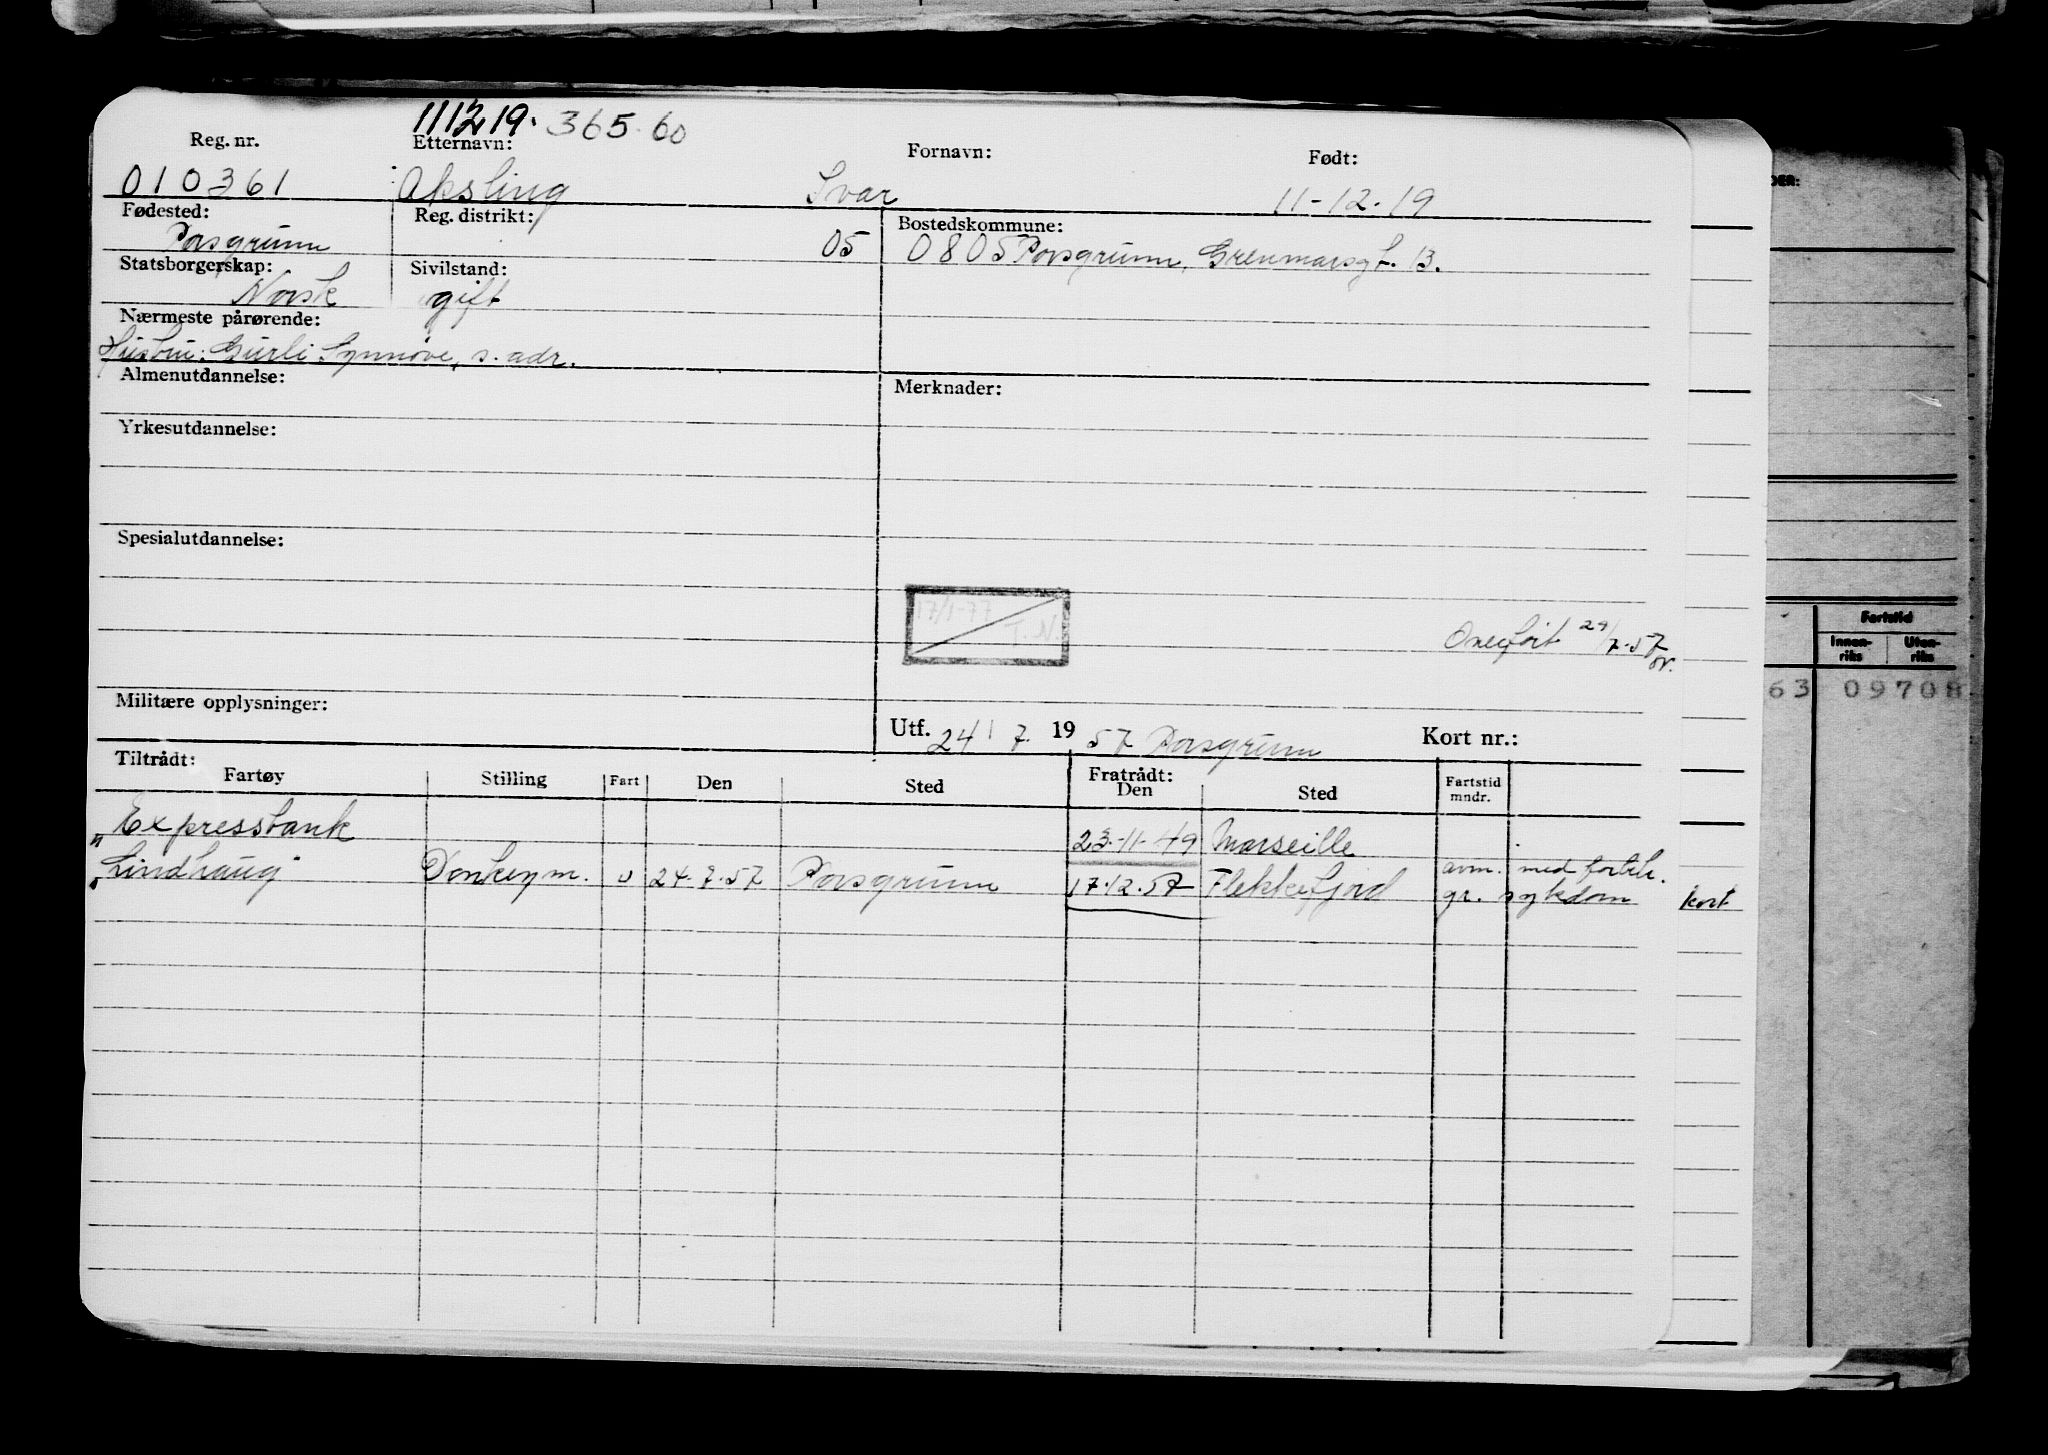 111219. 365.60
Reg. nr. Etternavn: Fornavn: Født:
010361 Aksling Ivar 11-12-19
Fødested: Reg. distrikt: Bostedskommune:
Porsgrunn 05 0805 Porsgrunn, Grenmarsgt. 13.
Statsborgerskap: Sivilstand:
Norsk gift
Nærmeste pårørende:
Hustru: Gurli Synnøve, s. adr.
Almenutdannelse: Merknader:
Yrkesutdannelse:
Spesialutdannelse:
17/1-77
T.N.
Overført 29/7-57
Militære opplysninger:
Utf. 24/7 1957 Porsgrunn Kort nr.:
Tiltrådt: Fratrådt:
Fartøy Stilling Fart Den Sted Den Sted Fartstid mndr.
"Expressbank 23-11-49 Marseille
"Lindhaug Donkeym. U 24.7.57 Porsgrunn 17.12.57 Flekkefjord avm. med
gr. sykdom kort
DER:
Fartstid
Innen-riks Uten-riks
63 09708